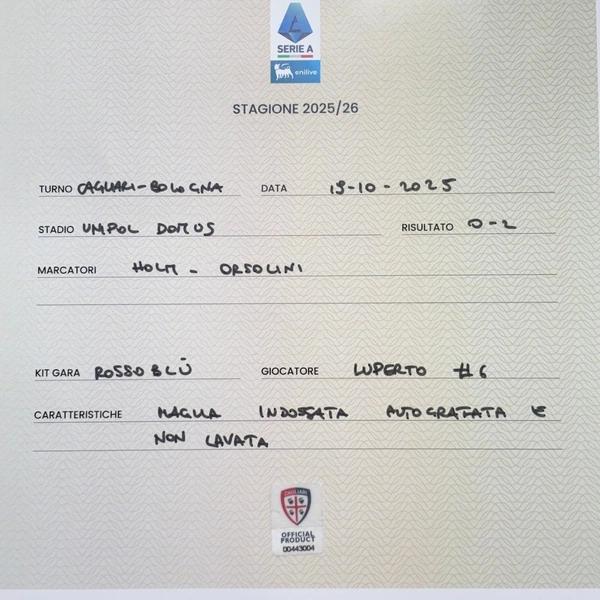 SERIE A
enilive
STAGIONE 2025/26
TURNO CAGLIARI-BOLOGNA DATA 19-10-2025
STADIO UNIPOL DOMUS RISULTATO 0-2
MARCATORI HOLM - ORSOLINI
KIT GARA ROSSOBLÙ GIOCATORE LUPERTO #6
CARATTERISTICHE MAGLIA INDOSSATA AUTOGRAFATA E
NON LAVATA
CAGLIARI
OFFICIAL
PRODUCT
00443004